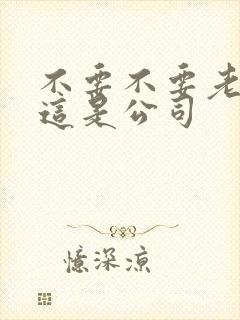 不要不要老
這是公司
憶深涼